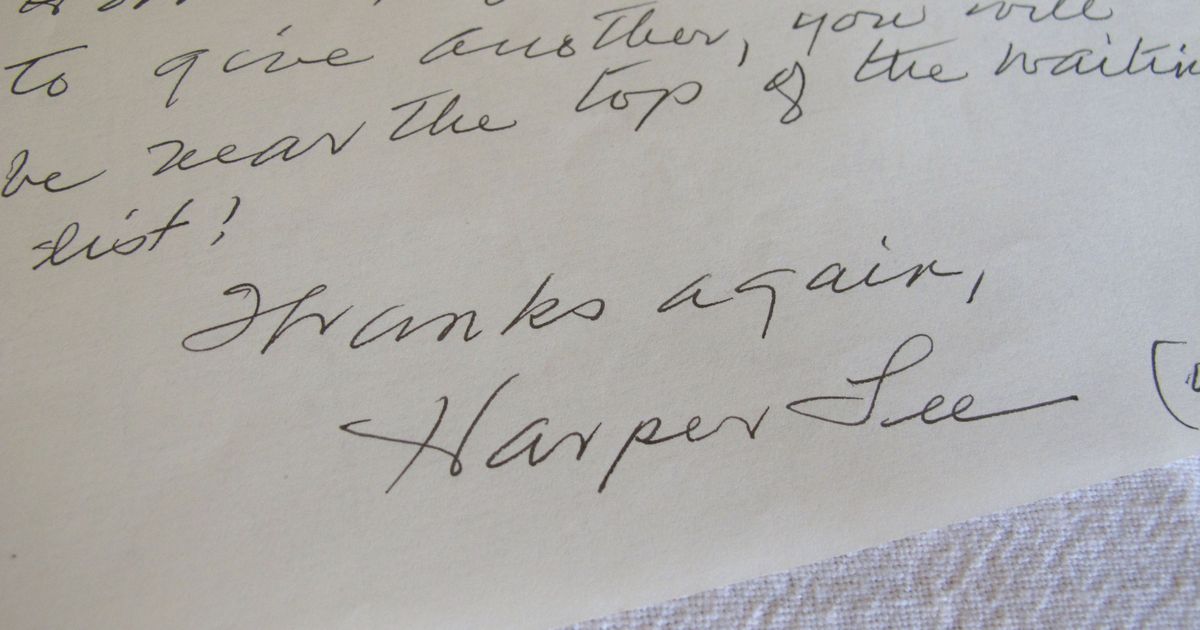 to give another, you will
be near the top of the waitin
list!
Thanks again,
Harper Lee (